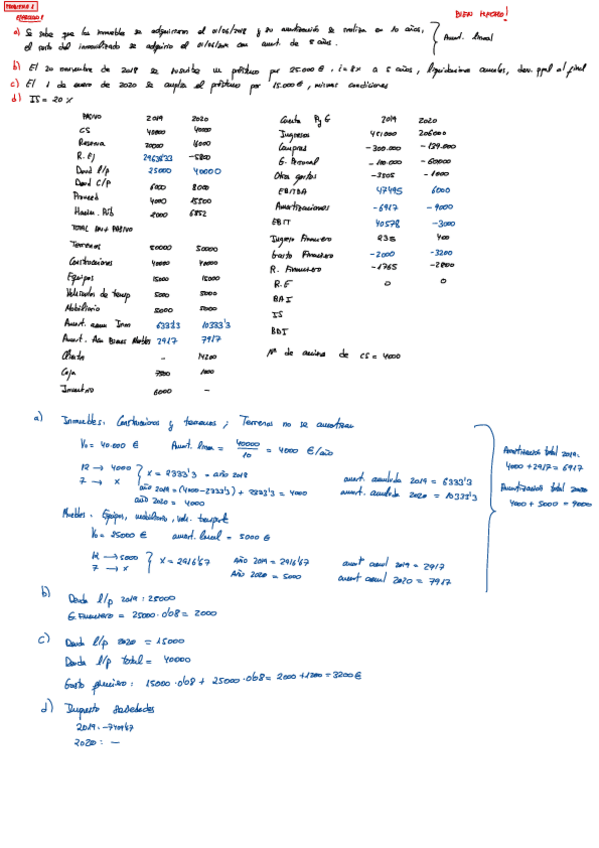 PROBLEMA 1
EJERCICIO 1
BIEN HECHO!
a) Se sabe que los inmuebles se adquirieron el 01/06/2018 y su amortización se realiza en 10 años,
el resto del inmovilizado se adquirió el 01/06/2019 con amort. de 5 años.
Amort. lineal
b) El 20 noviembre de 2018 se suscribe un préstamo por 25.000 €, i = 8% a 5 años, liquidaciones anuales, dev. ppal al final
c) El 1 de enero de 2020 se amplía el préstamo por 15.000 €, mismas condiciones
d) IS = 20 %
PASIVO 2019 2020
CS 40000 40000
Reserva 20000 16000
R. Ej 29638'33 -5800
Deud l/p 25000 40000
Deud C/P 6000 8000
Proveed 4000 15500
Hacien. Púb 2000 6852
TOTAL PN + PASIVO
Terrenos 50000 50000
Construcciones 40000 40000
Equipos 15000 15000
Vehículos de transp 5000 5000
Mobiliario 5000 5000
Amort. acum Inm 6333'3 10333'3
Amort. Acu Bienes Muebles 2917 7917
Clientes - 14200
Caja 7500 1000
Inventario 6000 -
Cuenta PyG 2019 2020
Ingresos 451000 206000
Compras -300.000 -139.000
G. Personal -100.000 -60000
Otros gastos -3505 -1000
EBITDA 47495 6000
Amortizaciones -6917 -9000
EBIT 40578 -3000
Ingreso Financiero 235 400
Gasto Financiero -2000 -3200
R. Financiero -1765 -2800
R.E 0 0
BAI
IS
BDI
Nº de acciones de CS = 4000
a) Inmuebles: Construcciones y terrenos; Terrenos no se amortizan
V₀ = 40.000 € Amort. lineal = 40000/10 = 4000 €/año
12 → 4000
7 → x
x = 2333'3 - año 2018
año 2019 = (4000-2333'3) + 2333'3 = 4000
año 2020 = 4000
amort. acumulada 2019 = 6333'3
amort. acumulada 2020 = 10333'3
Muebles: Equipos, mobiliario, veh. transporte
V₀ = 25000 € amort. lineal = 5000 €
12 → 5000
7 → x
x = 2916'67 Año 2019 = 2916'67 amort acum 2019 = 2917
Año 2020 = 5000 amort acum 2020 = 7917
Amortización total 2019:
4000 + 2917 = 6917
Amortización total 2020
4000 + 5000 = 9000
b) Deuda l/p 2019: 25000
G. Financiero = 25000 · 0'08 = 2000
c) Deuda l/p 2020 = 15000
Deuda l/p total = 40000
Gasto financiero: 15000 · 0'08 + 25000 · 0'08 = 2000 + 1200 = 3200 €
d) Impuesto Sociedades
2020: -